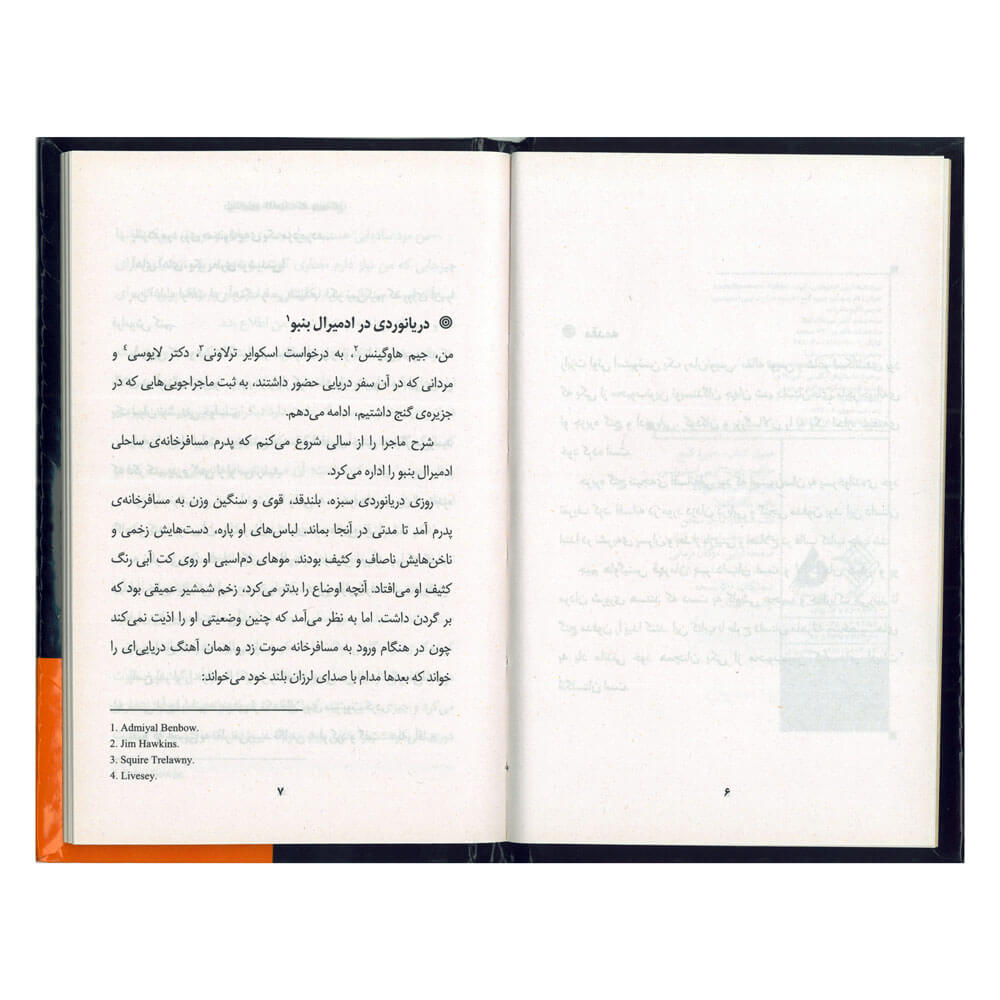 ۶
◎ دریانوردی در ادمیرال بنبو۱
من، جیم هاوگینس۲، به درخواست اسکوایر ترلاونی۳، دکتر لایوسی۴ و
مردانی که در آن سفر دریایی حضور داشتند، به ثبت ماجراجویی‌هایی که در
جزیره‌ی گنج داشتیم، ادامه می‌دهم.
شرح ماجرا را از سالی شروع می‌کنم که پدرم مسافرخانه‌ی ساحلی
ادمیرال بنبو را اداره می‌کرد.
روزی دریانوردی سبزه، بلندقد، قوی و سنگین وزن به مسافرخانه‌ی
پدرم آمد تا مدتی در آنجا بماند. لباس‌های او پاره، دست‌هایش زخمی و
ناخن‌هایش ناصاف و کثیف بودند. موهای دم‌اسبی او روی کت آبی رنگ
کثیف او می‌افتاد. آنچه اوضاع را بدتر می‌کرد، زخم شمشیر عمیقی بود که
بر گردن داشت. اما به نظر می‌آمد که چنین وضعیتی او را اذیت نمی‌کند
چون در هنگام ورود به مسافرخانه صوت زد و همان آهنگ دریایی‌ای را
خواند که بعدها مدام با صدای لرزان بلند خود می‌خواند:
1. Admiyal Benbow.
2. Jim Hawkins.
3. Squire Trelawny.
4. Livesey.
۷